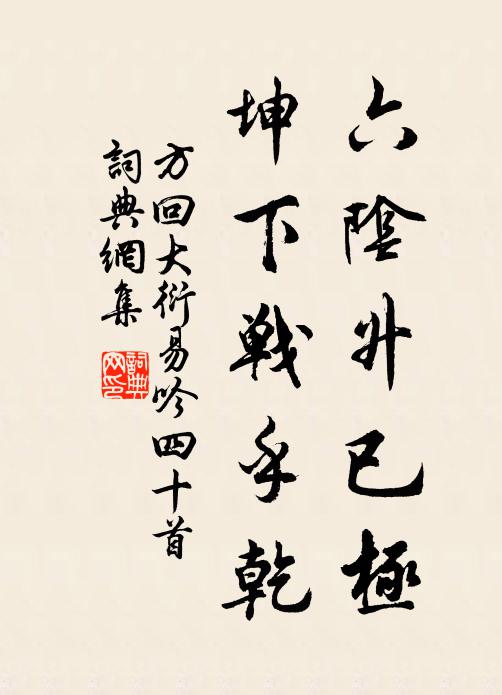 六陰升已極
坤下戰乎乾
方回大衍易吟四十首
詞典網集
詞典
网印